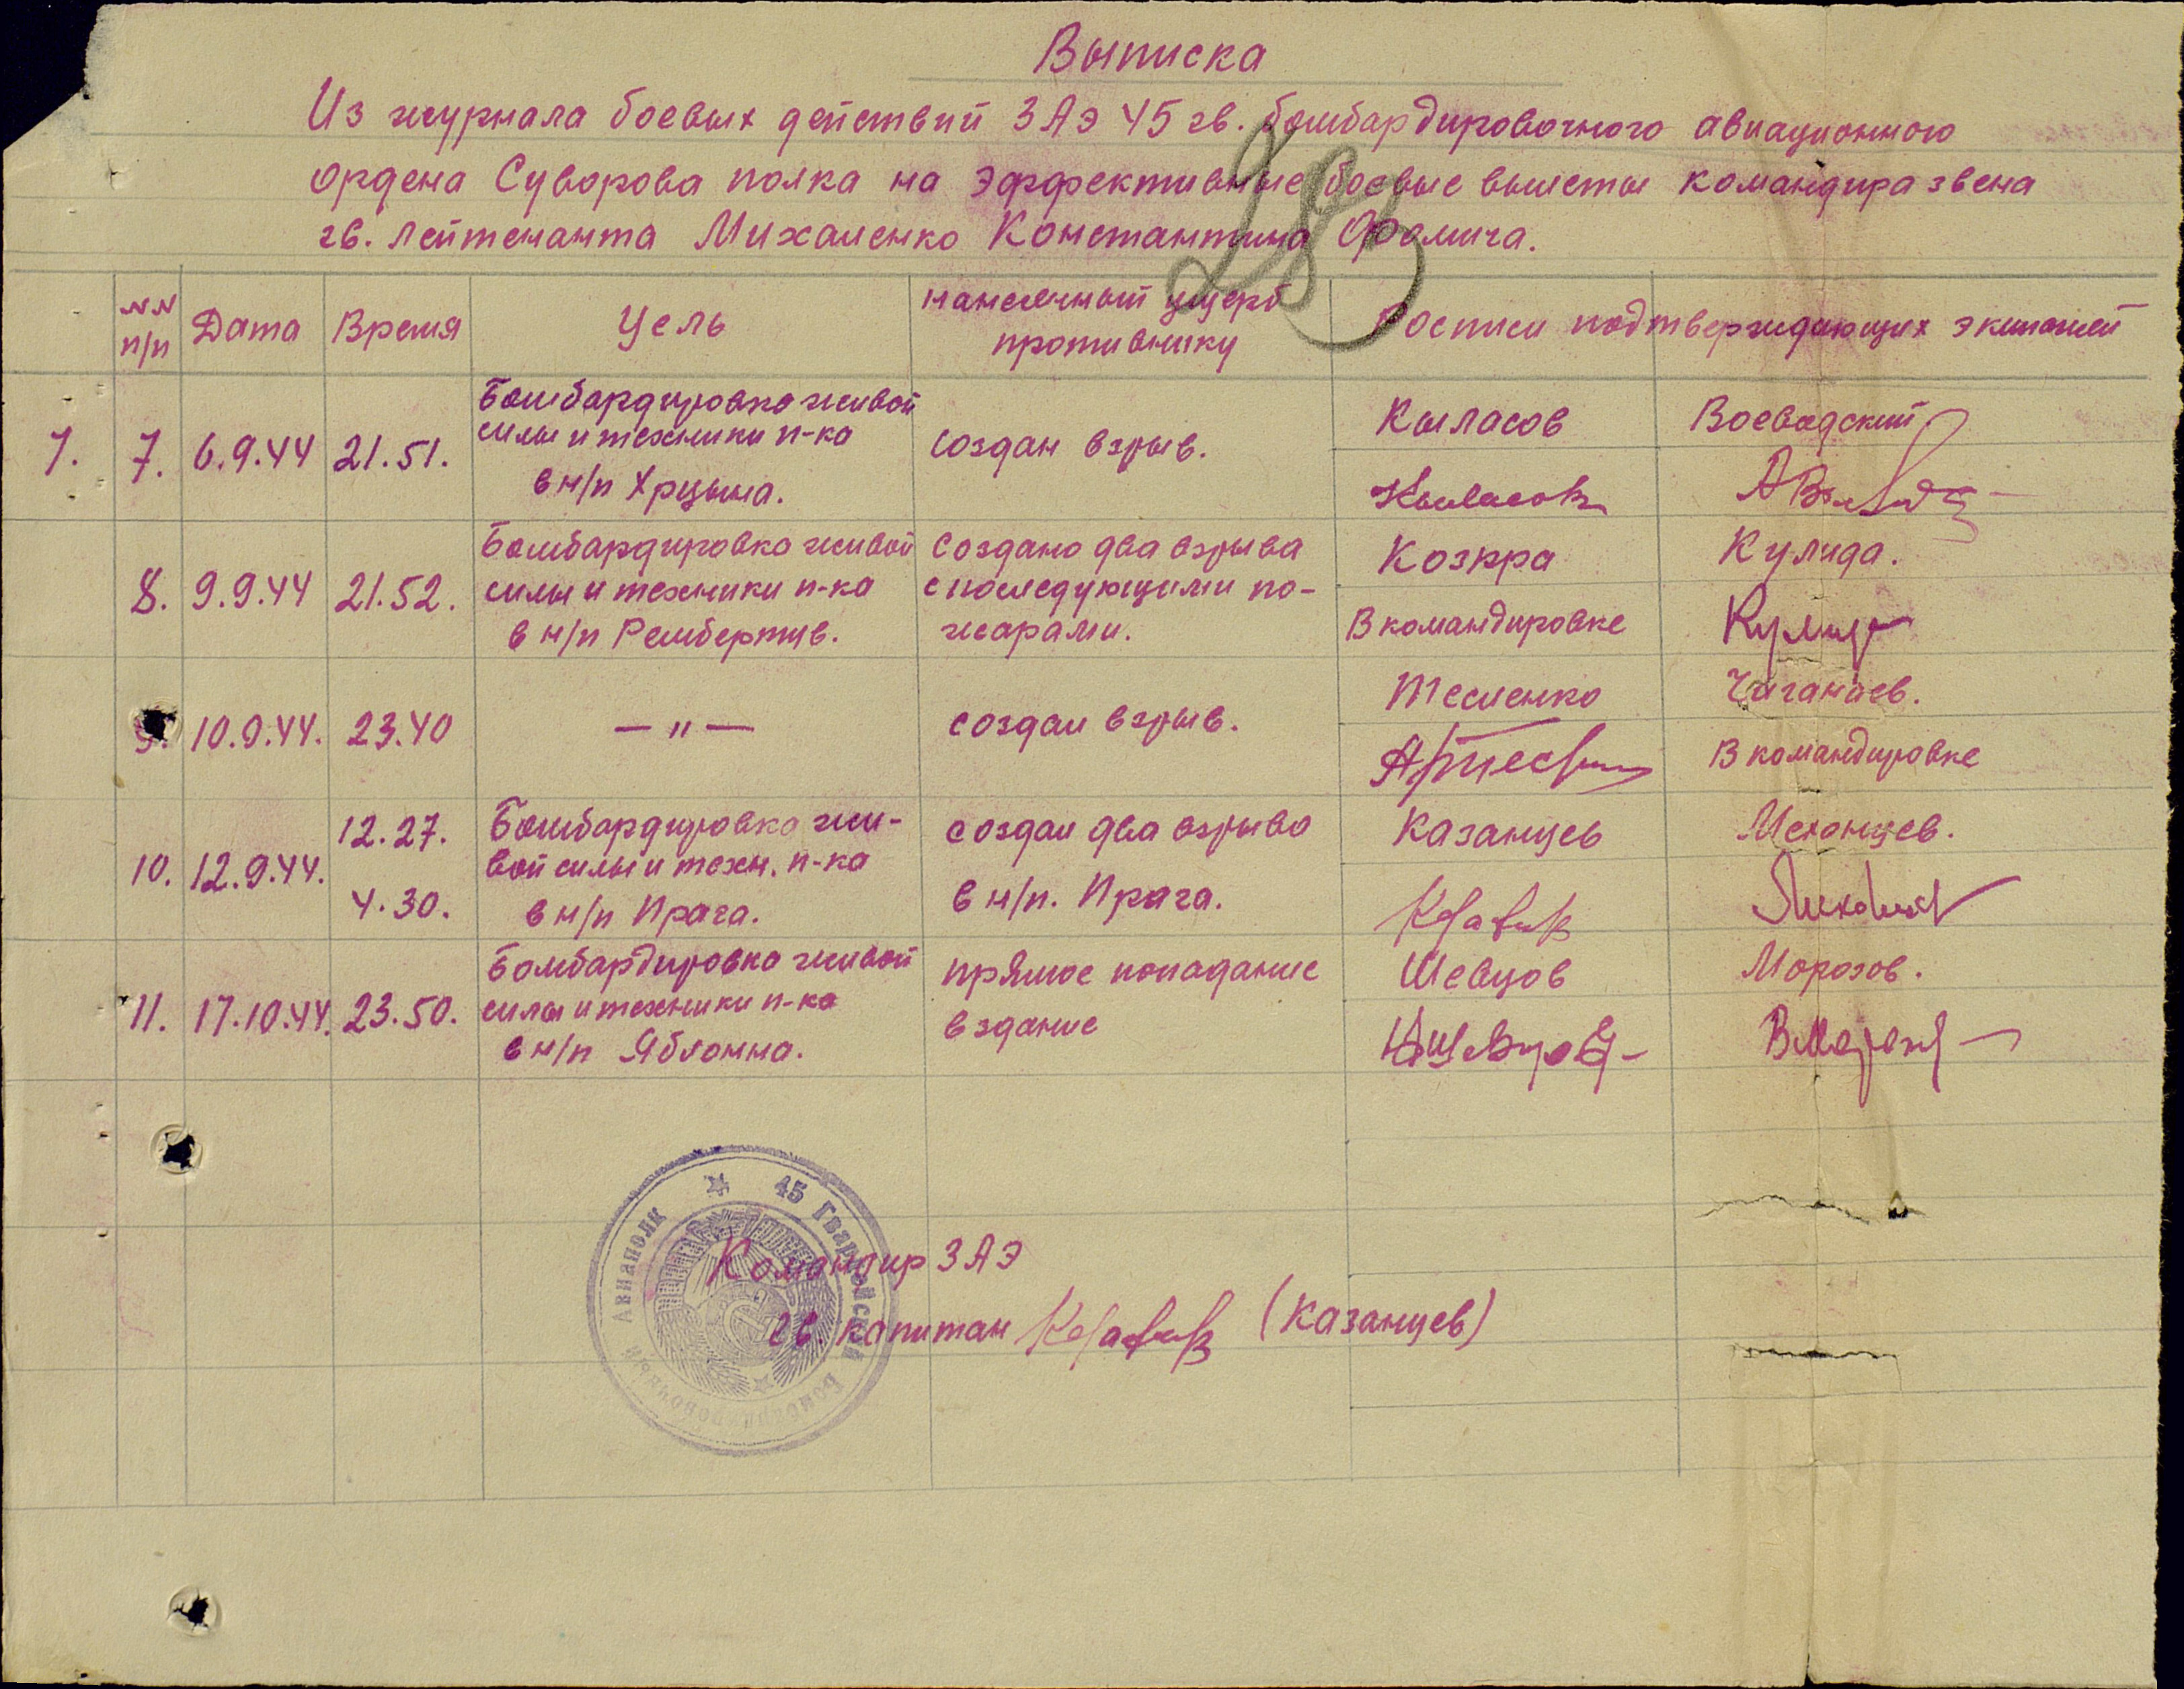 Выписка
Из журнала боевых действий 3 АЭ 45 гв. бомбардировочного авиационного
ордена Суворова полка на эффективные боевые вылеты командира звена
гв. лейтенанта Михаленко Константина Фомича.
28
NN п/п
Дата
Время
Цель
нанесенный ущерб
противнику
Росписи подтверждающих экипажей
7.
7.
6.9.44
21.51.
Бомбардировка живой
силы и техники п-ка
в н/п Хрцына.
создан взрыв.
Кыласов
Воеводский
Кыласов
8.
9.9.44
21.52.
Бомбардировка живой
силы и техники п-ка
в н/п Рембертув.
создано два взрыва
с последующими по-
жарами.
Козкра
Кулида.
В командировке
9.
10.9.44.
23.40
— " —
создан взрыв.
Тесленко
Чиганаев.
В командировке
10.
12.9.44.
12.27.
4.30.
Бомбардировка жи-
вой силы и техн. п-ка
в н/п Прага.
создан два взрыва
в н/п. Прага.
Казанцев
Меконцев.
11.
17.10.44.
23.50.
Бомбардировка живой
силы и техники п-ка
в н/п Яблонна.
прямое попадание
в здание
Шевцов
Морозов.
Авиаполк 45 Гвардейский Бомбардировочный
Командир 3 АЭ
гв. капитан (Казанцев)